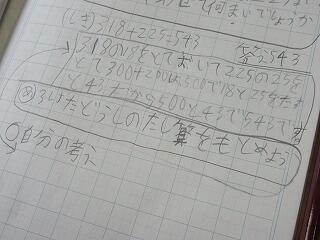 何まいでしょうか
(しき)318+225=543 答え543
318の18をとっておいて225の25を
とて300+200は500で18と25をたす
と43だから500と43で543です
㋱3けたどうしのたし算をもとめよう
自分の考え